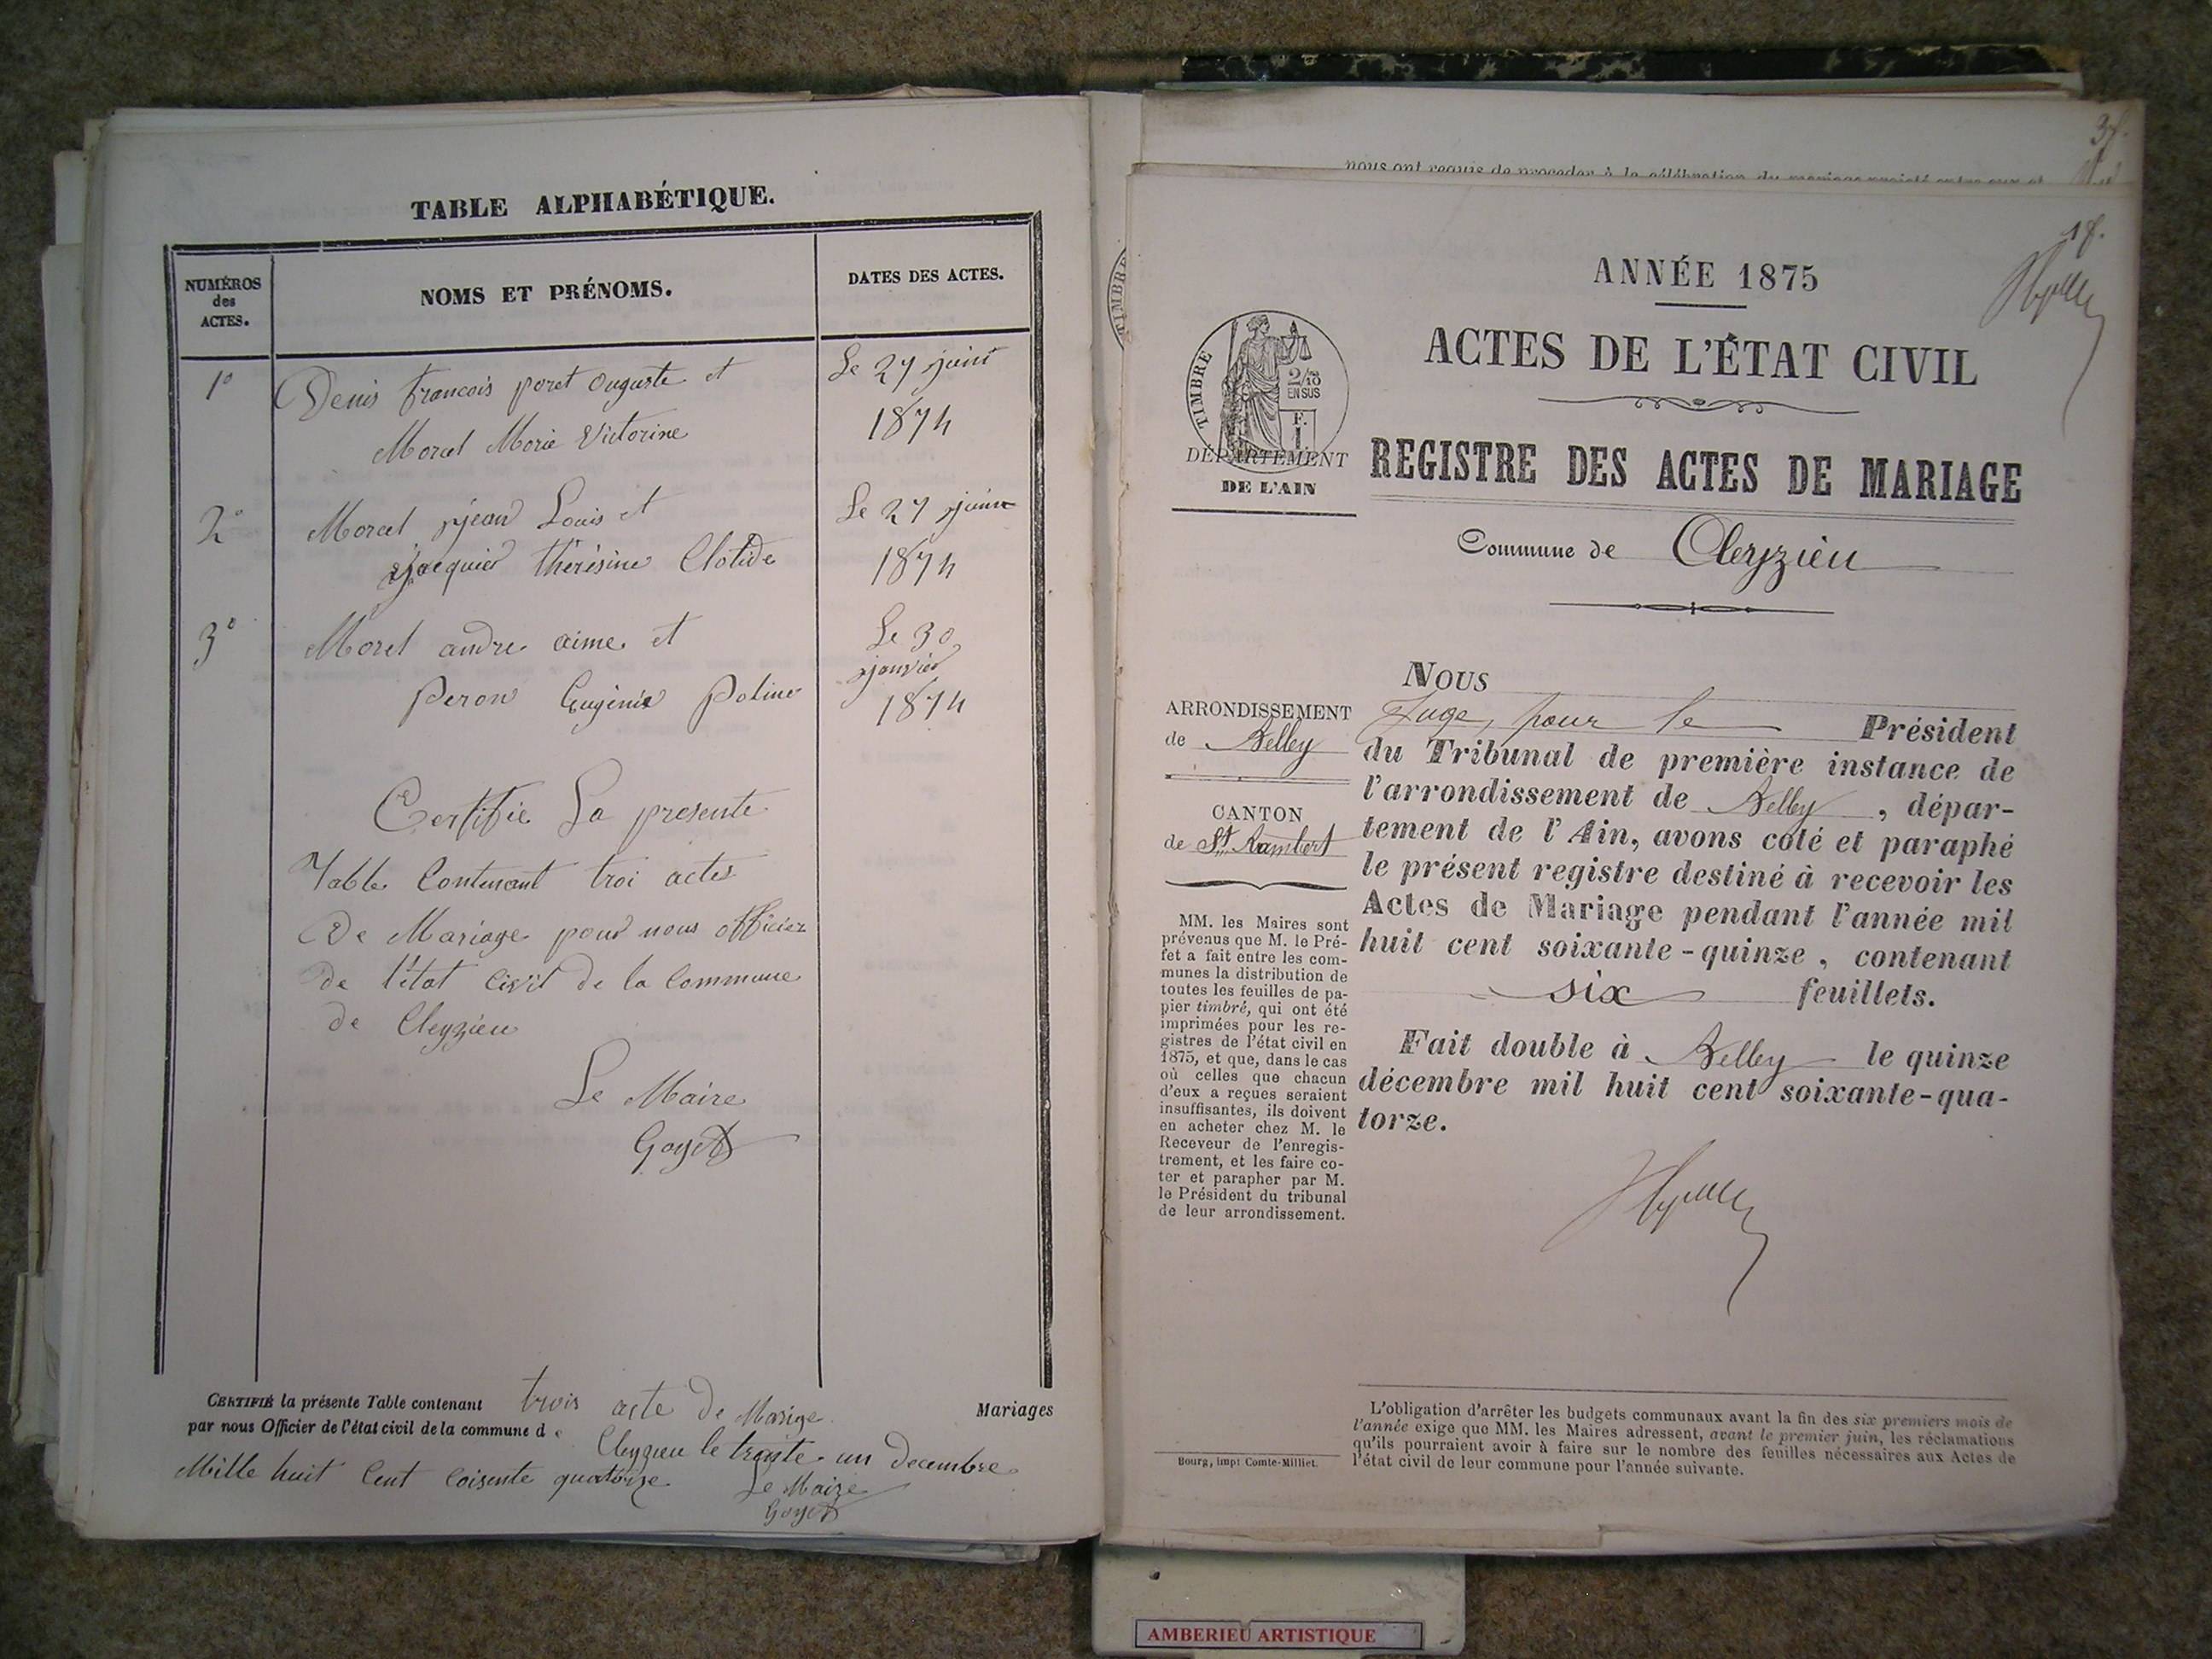 TABLE ALPHABÉTIQUE.
NUMÉROS
des
ACTES.
NOMS ET PRÉNOMS.
DATES DES ACTES.
1° Denis francois poret Auguste et Le 27 juin
Morel Marie Victorine 1874
2° Morel jean Louis et Le 27 juin
Jacquier thérésine Clotide 1874
3° Morel andre aime et Le 30
janvier
Peron Eugénie Poline 1874
Certifie La presente
Table Contenant troi actes
De Mariage pour nous officier
de l'état civil de la Commune
de Cleyzieu
Le Maire
Goyet
CERTIFIÉ la présente Table contenant trois acte de Marige Mariages
par nous Officier de l'état civil de la commune de Cleyzieu le trante un decembre
Mille huit Cent Coisente quatorze Le Maire
Goyet
37.
nous ont requis de proceder à la célébration du mariage projeté entre eux et
18.
ANNÉE 1875
ACTES DE L'ÉTAT CIVIL
TIMBRE
2/10
EN SUS
F.
1.
DÉPARTEMENT
DE L'AIN
REGISTRE DES ACTES DE MARIAGE
Commune de Cleyzieu
ARRONDISSEMENT
de Belley
CANTON
de St Rambert
MM. les Maires sont
prévenus que M. le Pré-
fet a fait entre les com-
munes la distribution de
toutes les feuilles de pa-
pier timbré, qui ont été
imprimées pour les re-
gistres de l'état civil en
1875, et que, dans le cas
où celles que chacun
d'eux a reçues seraient
insuffisantes, ils doivent
en acheter chez M. le
Receveur de l'enregis-
trement, et les faire co-
ter et parapher par M.
le Président du tribunal
de leur arrondissement.
Bourg, imp: Comte-Milliet.
Nous
Juge, pour le Président
du Tribunal de première instance de
l'arrondissement de Belley, dépar-
tement de l'Ain, avons coté et paraphé
le présent registre destiné à recevoir les
Actes de Mariage pendant l'année mil
huit cent soixante-quinze, contenant
six feuillets.
Fait double à Belley le quinze
décembre mil huit cent soixante-qua-
torze.
L'obligation d'arrêter les budgets communaux avant la fin des six premiers mois de
l'année exige que MM. les Maires adressent, avant le premier juin, les réclamations
qu'ils pourraient avoir à faire sur le nombre des feuilles nécessaires aux Actes de
l'état civil de leur commune pour l'année suivante.
AMBERIEU ARTISTIQUE